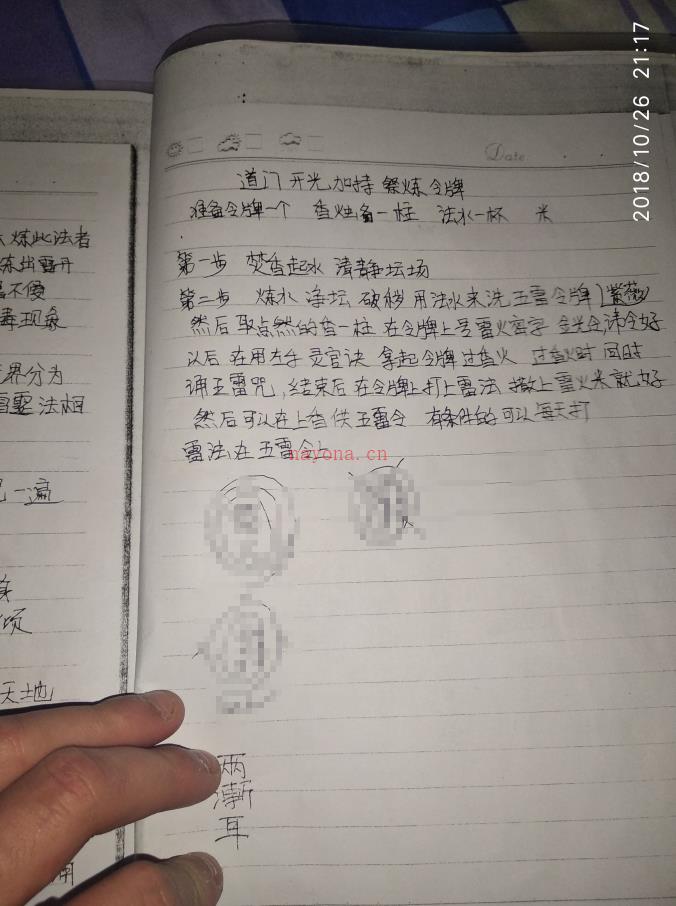 2018/10/26 21:17
Date
道门开光加持祭炼令牌
准备令牌一个 香烛备一柱 法水一杯 米
第一步 焚香起水 清静坛场
第二步 炼水净坛破秽用法水来洗五雷令牌(紫薇)
然后取点然的香一柱在令牌上
以后在用左手灵官诀 拿起令牌过香火 过香火时同时
诵五雷咒,结束后在令牌上打上雷法 撒上雷火米就好
然后可以在上香供五雷令 有条件的可以每天打
雷法在五雷令上
nayona.cn
两
渐
耳
炼此法者
不便
毒现象
界分为
法相
一遍
天地